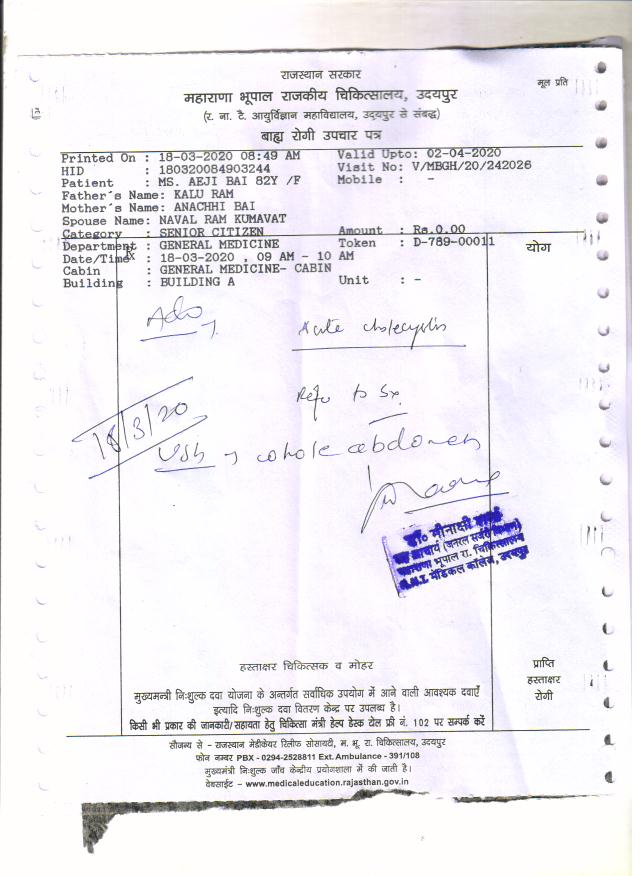 राजस्थान सरकार
मूल प्रति
महाराणा भूपाल राजकीय चिकित्सालय, उदयपुर
(र. ना. टै. आयुर्विज्ञान महाविद्यालय, उदयपुर से संबद्ध)
बाह्य रोगी उपचार पत्र
Printed On : 18-03-2020 08:49 AM Valid Upto: 02-04-2020
HID : 180320084903244 Visit No: V/MBGH/20/242026
Patient : MS. AEJI BAI 82Y /F Mobile : -
Father's Name: KALU RAM
Mother's Name: ANACHHI BAI
Spouse Name: NAVAL RAM KUMAVAT
Category : SENIOR CITIZEN Amount : Rs.0.00
Department : GENERAL MEDICINE Token : D-789-00011
योग
Date/Time : 18-03-2020 , 09 AM - 10 AM
Cabin : GENERAL MEDICINE- CABIN
Building : BUILDING A Unit : -
Adv
Acute cholecystis
Refer to Sx.
18/3/20
USG → whole abdomen
डॉ० मीनाक्षी
आचार्य (जनरल सर्जरी
महाराणा भूपाल रा. चिकित्सालय
R.N.T. मेडिकल कॉलेज, उदयपुर
हस्ताक्षर चिकित्सक व मोहर
प्राप्ति
हस्ताक्षर
रोगी
मुख्यमन्त्री निःशुल्क दवा योजना के अन्तर्गत सर्वाधिक उपयोग में आने वाली आवश्यक दवाएँ
इत्यादि निःशुल्क दवा वितरण केन्द्र पर उपलब्ध है।
किसी भी प्रकार की जानकारी/सहायता हेतु चिकित्सा मंत्री हेल्प डेस्क टोल फ्री नं. 102 पर सम्पर्क करें
सौजन्य से - राजस्थान मेडीकेयर रिलीफ सोसायटी, म. भू. रा. चिकित्सालय, उदयपुर
फोन नम्बर PBX - 0294-2528811 Ext. Ambulance - 391/108
मुख्यमंत्री निःशुल्क जाँच केन्द्रीय प्रयोगशाला में की जाती है।
वेबसाईट – www.medicaleducation.rajasthan.gov.in